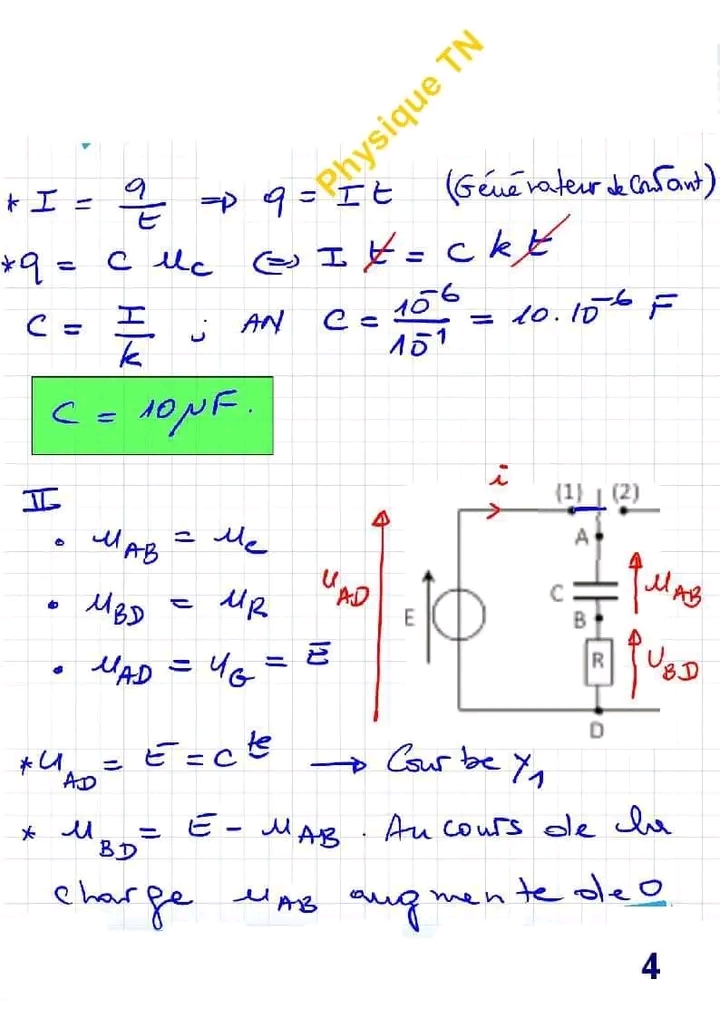 Physique TN
* I = q/t ⇒ q = I t (Générateur de Constant)
* q = C uc ⇔ I t = C k t
C = I/k ; AN C = 10⁻⁶/10⁻¹ = 10.10⁻⁶ F
C = 10 µF.
II
• uAB = uc
• uBD = uR
• uAD = uG = E
i
(1) (2)
A
uAD
E
C
uAB
B
R
UBD
D
* uAD = E = Cte → Courbe Y1
* uBD = E - uAB . Au cours de la
charge uAB augmente de 0
4